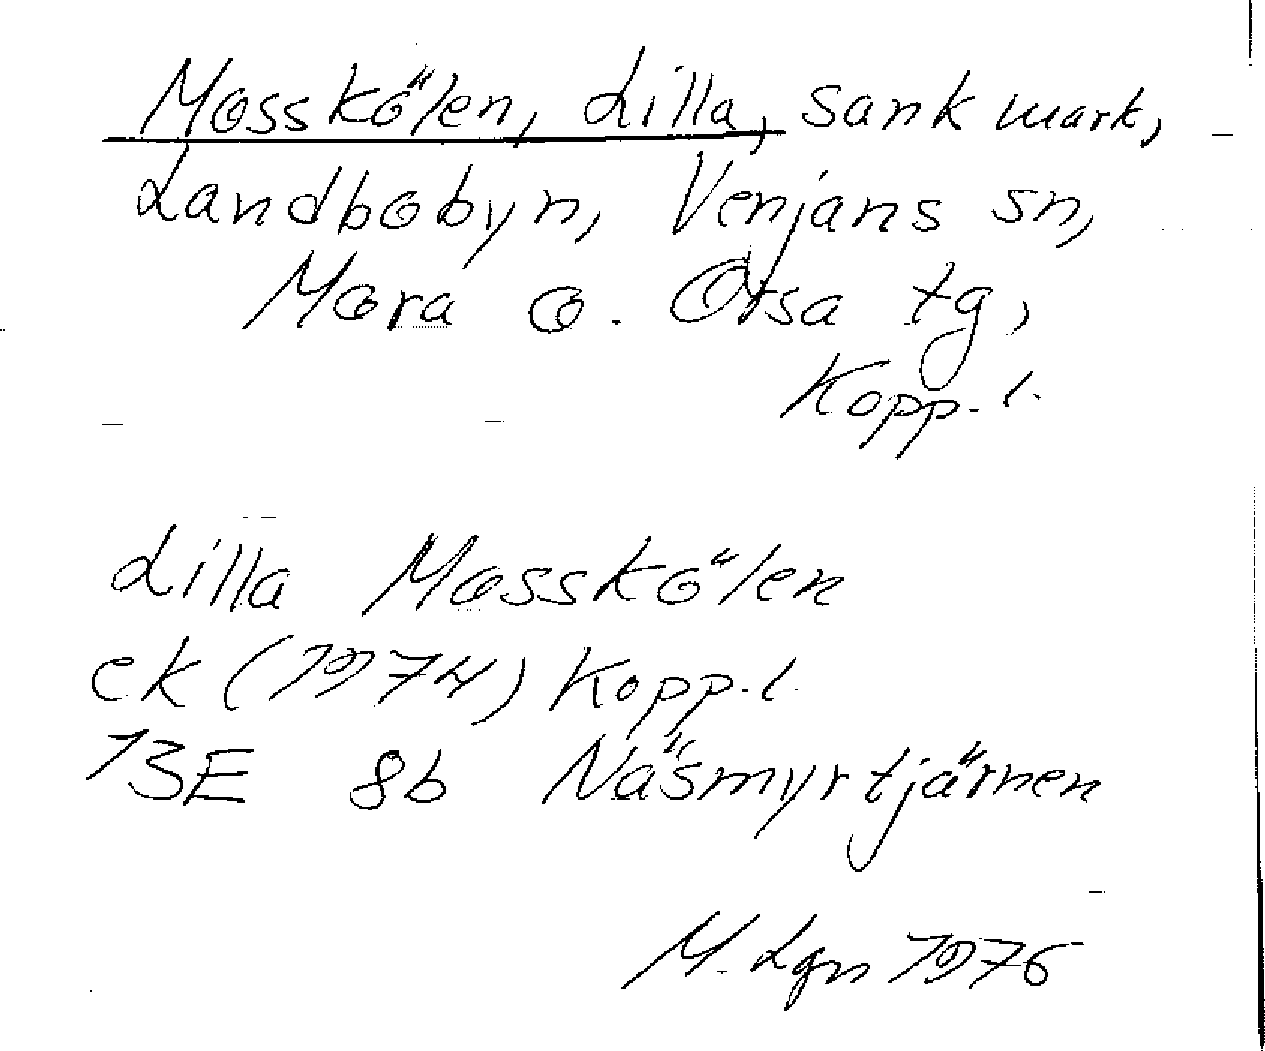 Mosskölen, Lilla, sank mark,
Landbobyn, Venjans sn,
Mora o. Orsa tg,
Kopp. l.
Lilla Mosskölen
ek (1974) Kopp. l.
13E 8b Näsmyrtjärnen
M. Lgn 1976